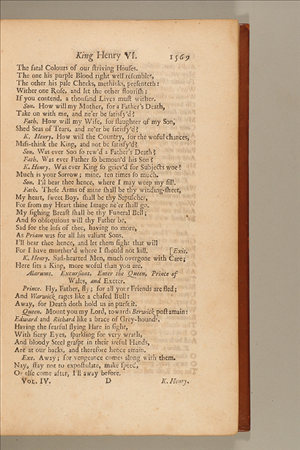 King Henry VI. 1569
The fatal Colours of our striving Houses.
The one his purple Blood right well resembles,
The other his pale Cheeks, methinks, presenteth:
Wither one Rose, and let the other flourish:
If you contend, a thousand Lives must wither.
Son. How will my Mother, for a Father's Death,
Take on with me, and ne'er be satisfy'd?
Fath. How will my Wife, for slaughter of my Son,
Shed Seas of Tears, and ne'er be satisfy'd?
K. Henry. How will the Country, for these woful chances,
Mis-think the King, and not be satisfy'd?
Son. Was ever Son so rew'd a Father's Death?
Fath. Was ever Father so bemoan'd his Son?
K. Henry. Was ever King so griev'd for Subjects woe?
Much is your Sorrow; mine, ten times so much.
Son. I'll bear thee hence, where I may weep my fill.
Fath. These Arms of mine shall be thy winding-sheet,
My heart, sweet Boy, shall be thy Sepulcher,
For from my Heart thine Image ne'er shall go.
My sighing Breast shall be thy Funeral Bell;
And so obsequious will thy Father be,
Sad for the loss of thee, having no more,
As Priam was for all his valiant Sons.
I'll bear thee hence, and let them fight that will
For I have murther'd where I should not kill. [Exit.
K. Henry. Sad-hearted Men, much overgone with Care;
Here sits a King, more woful than you are.
Alarums. Excursions. Enter the Queen, Prince of
Wales, and Exeter.
Prince. Fly, Father, fly; for all your Friends are fled;
And Warwick rages like a chafed Bull:
Away, for Death doth hold us in pursuit.
Queen. Mount you my Lord, towards Berwick post amain:
Edward and Richard like a brace of Grey-hounds,
Having the fearful flying Hare in sight,
With fiery Eyes, sparkling for very wrath,
And bloody Steel graspt in their ireful Hands,
Are at our backs, and therefore hence amain.
Exe. Away; for vengeance comes along with them.
Nay, stay not to expostulate, make speed,
Or else come after, I'll away before.
VOL. IV. D K. Henry.